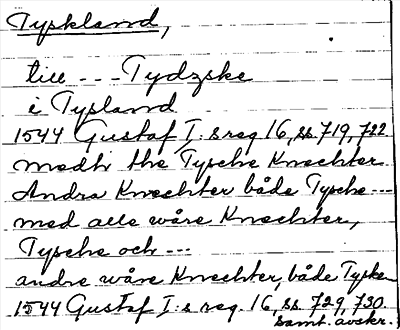 Tyskland,
till --- Tydzske
i Tysland
1544 Gustaf I:s reg 16, ss. 719, 722
medh the Tysche Knechter
Andra Knechter både Tysche ---
med alle wåre Knechter,
Tysche och ---
andre wåre Knechter, både Tyske
1544 Gustaf I:s reg. 16, ss. 729, 730.
Samt. avskr.